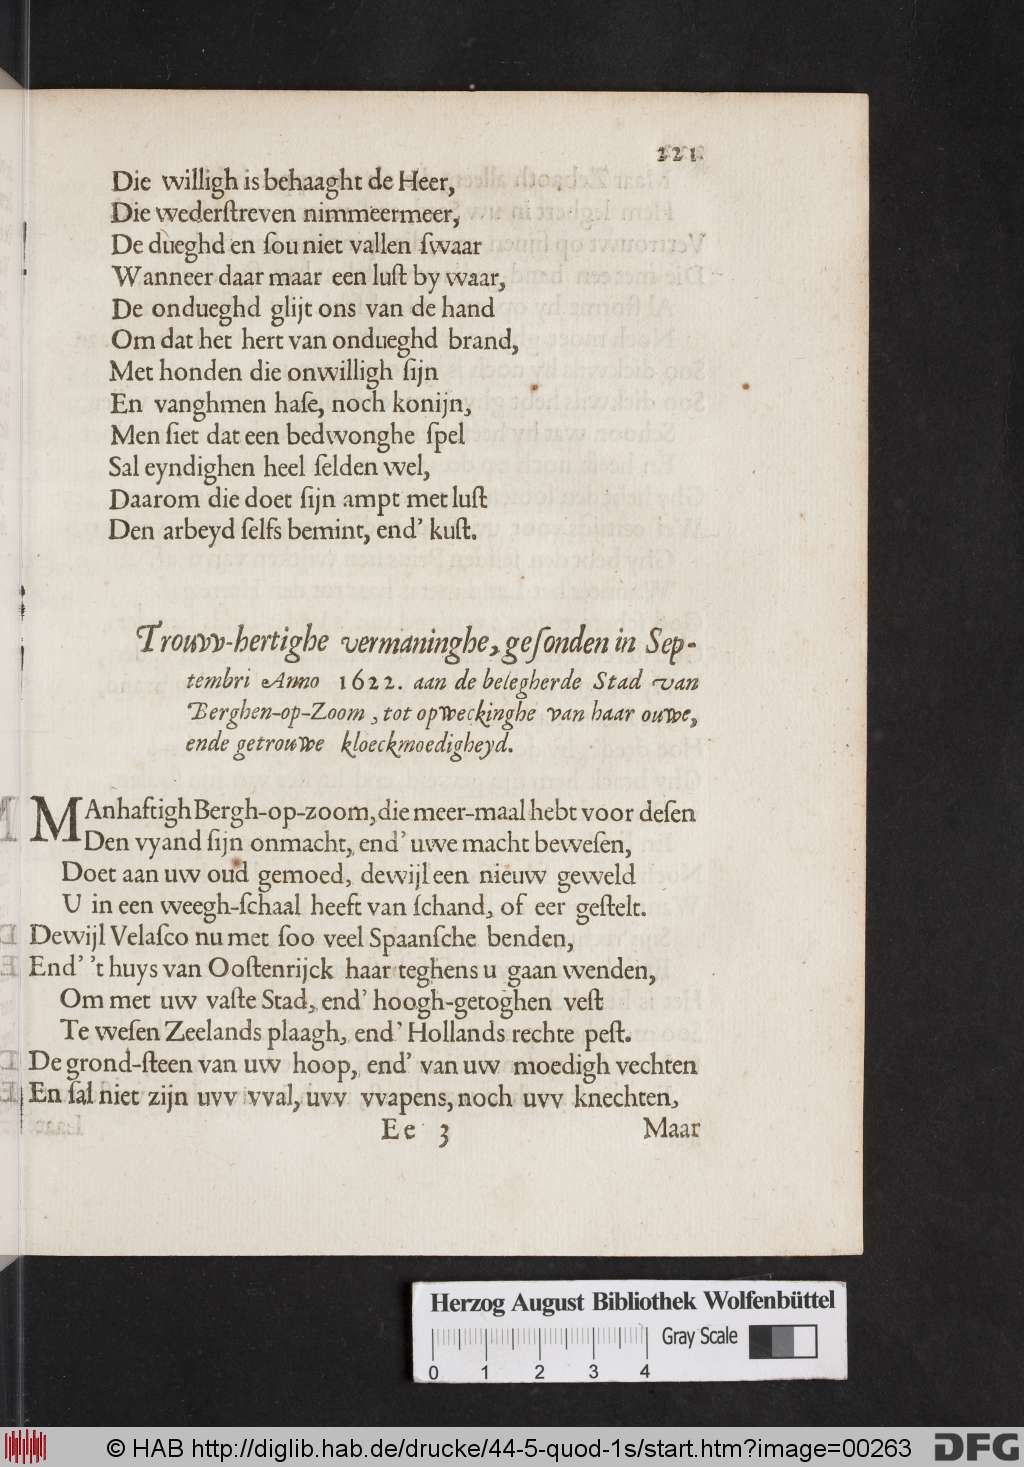 221.
Die willigh is behaaght de Heer,
Die wederſtreven nimmeermeer,
De dueghd en ſou niet vallen ſwaar
Wanneer daar maar een luſt by waar,
De ondueghd glijt ons van de hand
Om dat het hert van ondueghd brand,
Met honden die onwilligh ſijn
En vanghmen haſe, noch konijn,
Men ſiet dat een bedwonghe ſpel
Sal eyndighen heel ſelden wel,
Daarom die doet ſijn ampt met luſt
Den arbeyd ſelfs bemint, end' kuſt.
Trouvv-hertighe vermaninghe, geſonden in Sep-
tembri Anno 1622. aan de belegherde Stad van
Berghen-op-Zoom, tot opweckinghe van haar ouwe,
ende getrouwe kloeckmoedigheyd.
MAnhaftigh Bergh-op-zoom, die meer-maal hebt voor deſen
Den vyand ſijn onmacht, end' uwe macht beweſen,
Doet aan uw oud gemoed, dewijl een nieuw geweld
U in een weegh-ſchaal heeft van ſchand, of eer geſtelt.
Dewijl Velaſco nu met ſoo veel Spaanſche benden,
End' 't huys van Ooſtenrijck haar teghens u gaan wenden,
Om met uw vaſte Stad, end' hoogh-getoghen veſt
Te weſen Zeelands plaagh, end' Hollands rechte peſt.
De grond-ſteen van uw hoop, end' van uw moedigh vechten
En ſal niet zijn uvv vval, uvv vvapens, noch uvv knechten,
Ee 3 Maar
Herzog August Bibliothek Wolfenbüttel
Gray Scale
0 1 2 3 4
© HAB http://diglib.hab.de/drucke/44-5-quod-1s/start.htm?image=00263
DFG